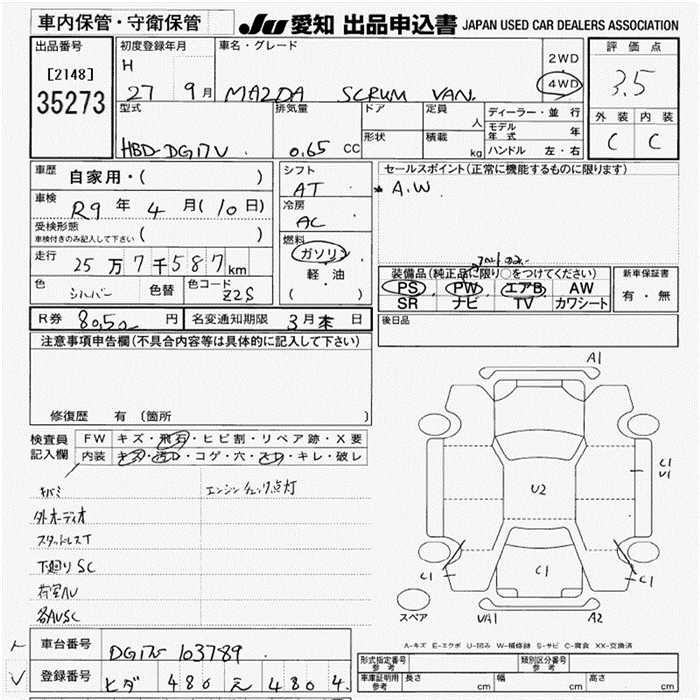 車内保管・守衛保管
JU 愛知 出品申込書 JAPAN USED CAR DEALERS ASSOCIATION
出品番号
[2148]
35273
初度登録年月
H
27 9月
車名・グレード
MAZDA SCRUM VAN.
2WD
4WD
評価点
3.5
外装 内装
C C
型式
HBD-DG17V
排気量
0.65 CC
ドア
形状
定員
人
積載
kg
ディーラー・並行
モデル年式 年
ハンドル 左・右
車歴
自家用・( )
車検
R9年 4月(10日)
受検形態
車検付きのみ記入して下さい ( )
走行
25万7千587km
色
シルバー 色替
色コード
Z2S
シフト
AT
冷房
AC
燃料
ガソリン
軽・油
( )
セールスポイント(正常に機能するものに限ります)
A.W
フロントのみ
装備品(純正品に限り○をつけてください)
PS PW エアB AW
SR ナビ TV カワシート
新車保証書
有・無
R券 8050円
名変通知期限 3月末日
後日品
注意事項申告欄(不具合内容等は具体的に記入して下さい)
修復歴 有 (箇所 )
検査員
記入欄
FW キズ・飛石・ヒビ割・リペア跡・X要
内装 キズ・汚レ・コゲ・穴・スレ・キレ・破レ
キバミ
エンジンチェック点灯
外オーディオ
スタッドレスT
下廻りSC
荷室AU
各AUSC
A1
C1
U1
U2
C1
C1
C1
UA1
A2
スペア
A-キズ E-エクボ U-凹み W-補修跡 S-サビ C-腐食 XX-交換済
車台番号
DG17V-103789
登録番号
ヒダ 480 え 4804
形式指定番号
参考
類別区分番号
参考
車庫証明用
参考
長さ cm 幅 cm 高さ cm